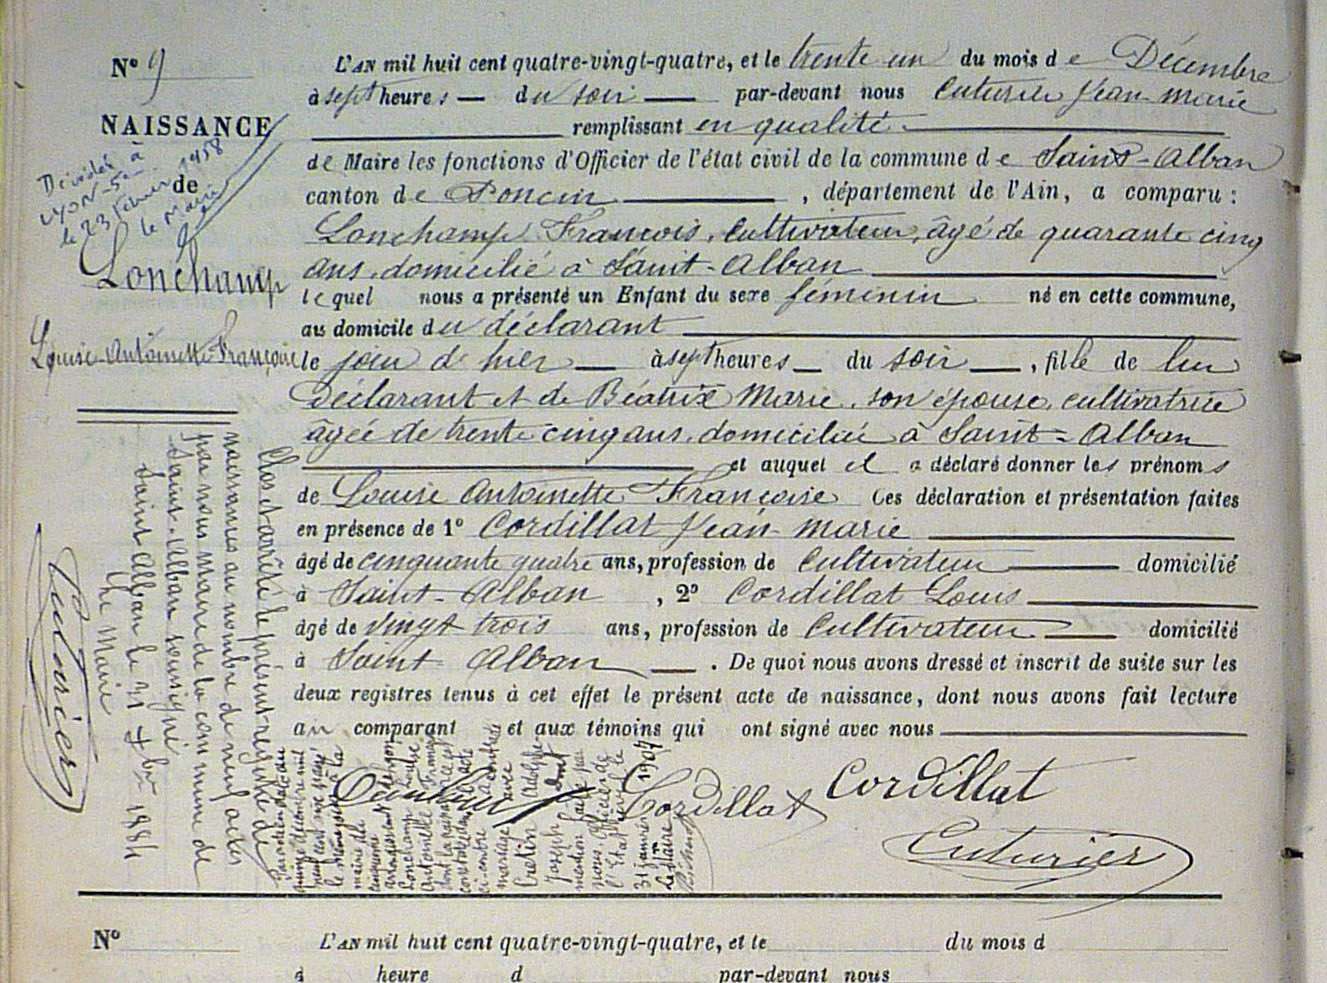 N° 9
NAISSANCE
de
Décédée à
Lyon 5e
le 23 février 1958
le Maire
Lonchamp
Louise-Antoinette-Françoise
L'AN mil huit cent quatre-vingt-quatre, et le trente un du mois de Décembre
à sept heures du soir par-devant nous Cuturier Jean-Marie
remplissant en qualité
de Maire les fonctions d'Officier de l'état civil de la commune de Saint-Alban
canton de Poncin, département de l'Ain, a comparu :
Lonchamp François, cultivateur, âgé de quarante cinq
ans, domicilié à Saint-Alban
lequel nous a présenté un Enfant du sexe féminin né en cette commune,
au domicile du déclarant
le jour d'hier à sept heures du soir, fille de lui
déclarant et de Béatrix Marie, son épouse, cultivatrice
âgée de trente cinq ans, domiciliée à Saint-Alban
et auquel il a déclaré donner les prénoms
de Louise Antoinette Françoise Ces déclaration et présentation faites
en présence de 1° Cordillat Jean-Marie
âgé de cinquante quatre ans, profession de cultivateur domicilié
à Saint-Alban, 2° Cordillat Louis
âgé de vingt trois ans, profession de cultivateur domicilié
à Saint Alban. De quoi nous avons dressé et inscrit de suite sur les
deux registres tenus à cet effet le présent acte de naissance, dont nous avons fait lecture
au comparant et aux témoins qui ont signé avec nous
Cordillat Cordillat
Cuturier
Clos et arrêté le présent registre de
naissances au nombre de neuf actes
par nous Maire de la commune de
Saint-Alban soussigné
Saint Alban le 31 Xbre 1884
Le Maire
Cuturier
Par acte en date du
quinze décembre mil
neuf cent
mairie du
cinquième
arrondissement de Lyon
Lonchamp Louise
Antoinette Françoise
dont la naissance est
constatée dans l'acte
ci-contre a contracté
mariage avec
Cretin Adolphe
Joseph dont
mention faite par
nous Officier de
l'Etat civil le
31 janvier 1907
Le Maire
N° L'AN mil huit cent quatre-vingt-quatre, et le du mois d
à heure d par-devant nous